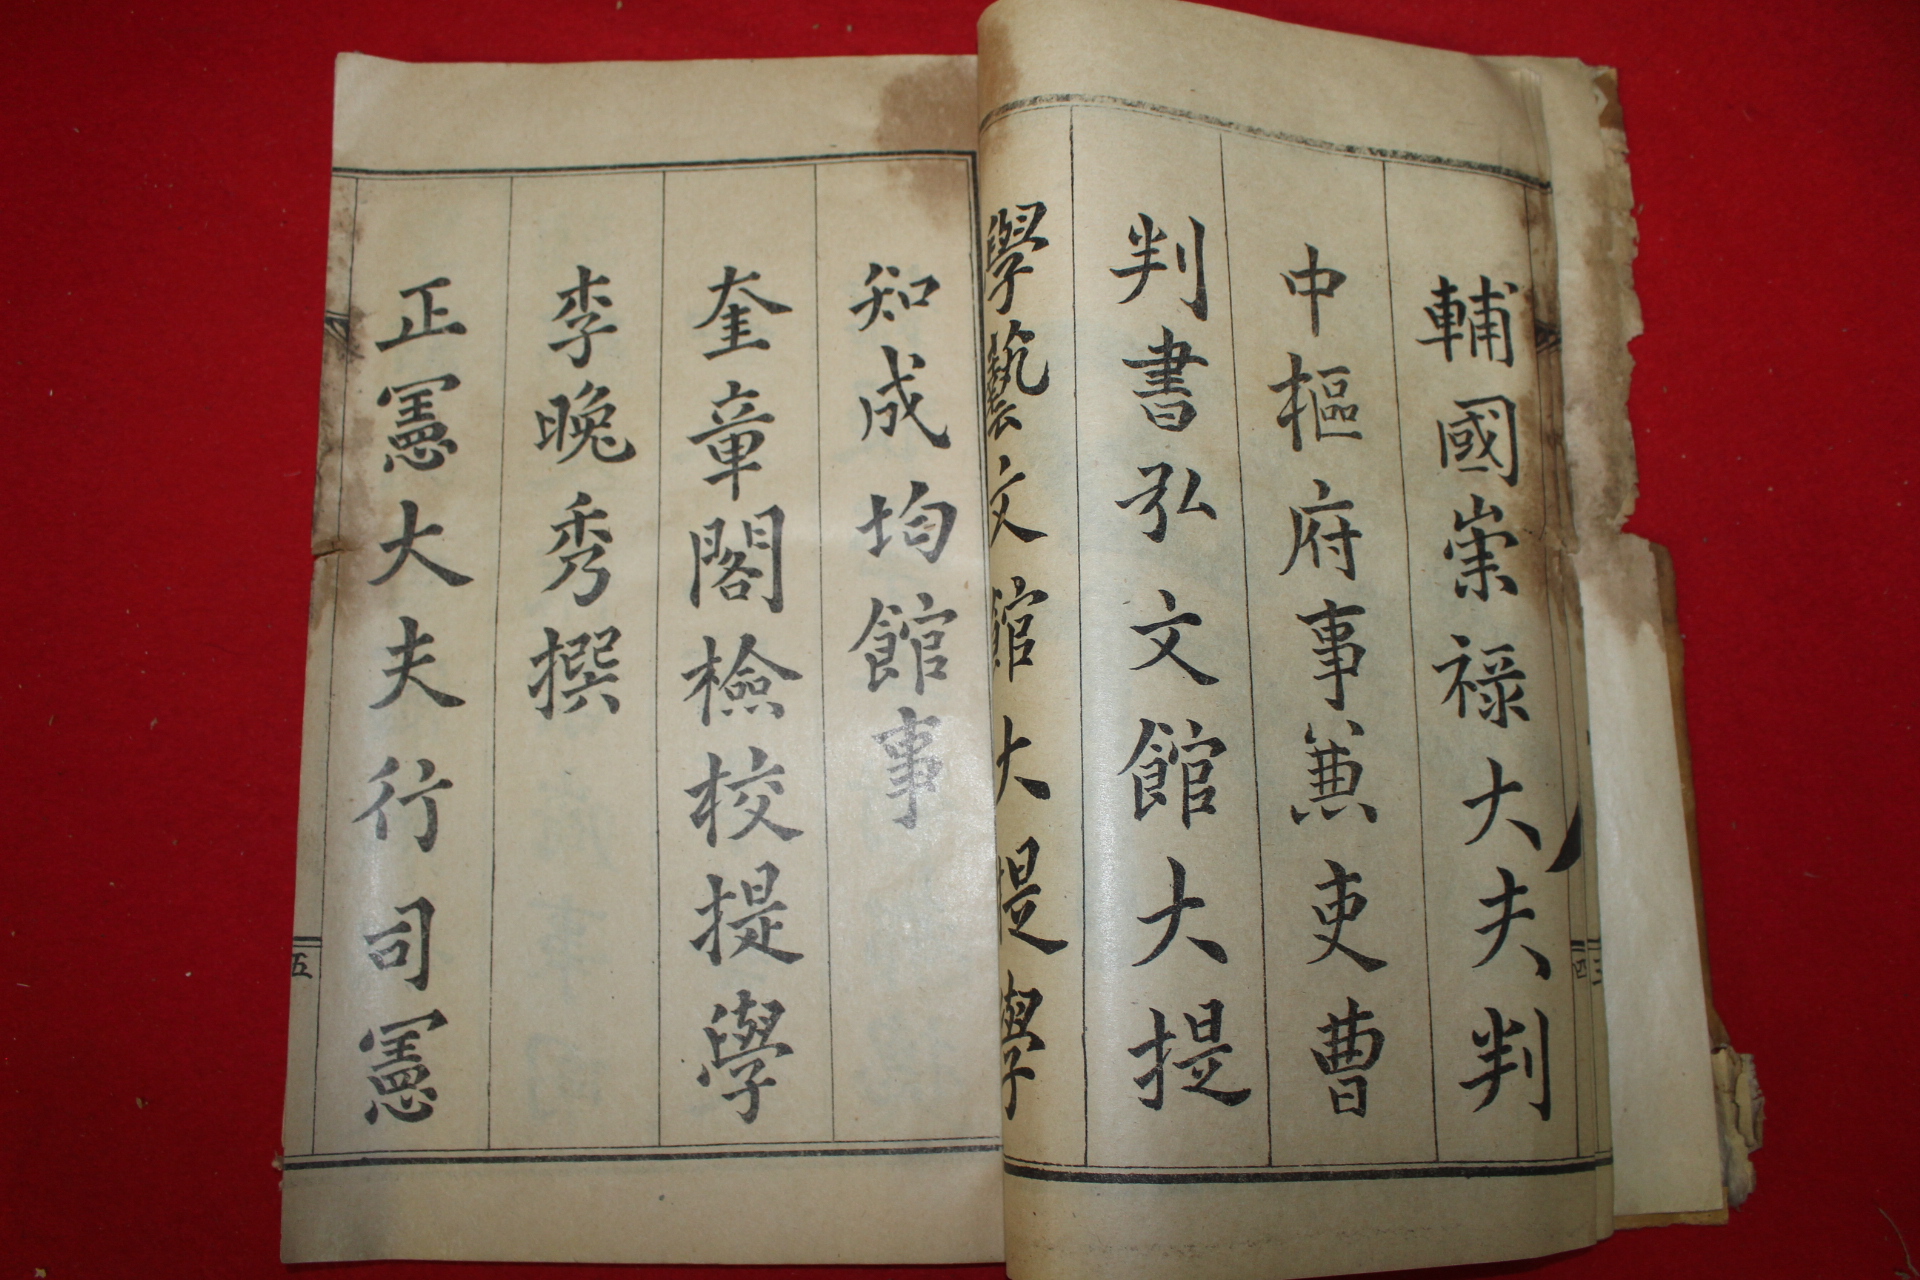 輔國崇祿大夫判
中樞府事兼吏曹
判書弘文館大提
學藝文館大提學
知成均館事
奎章閣檢校提學
李晚秀撰
正憲大夫行司憲
四
五